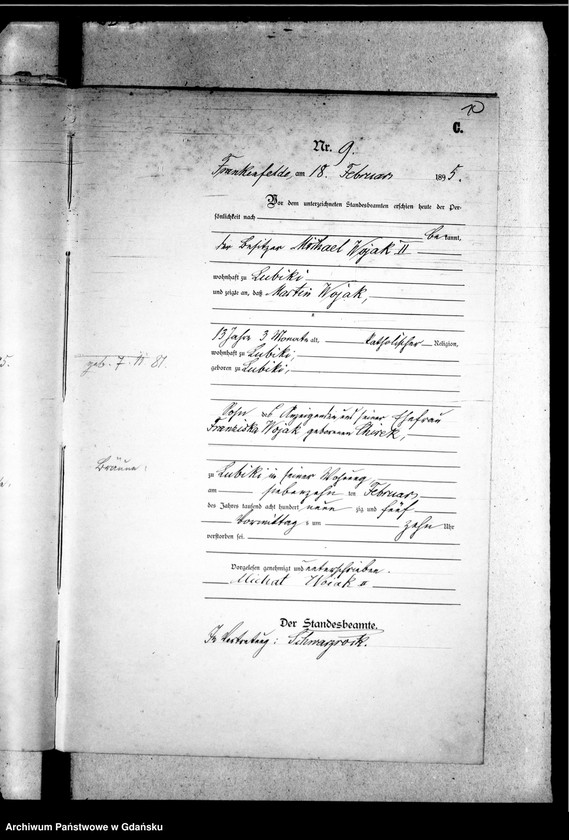 C.
Nr. 9.
Frankenfelde, am 18. Februar 1895.
Vor dem unterzeichneten Standesbeamten erschien heute der Per-
sönlichkeit nach
be kannt,
der Besitzer Michael Wojak II
wohnhaft zu Lubiki
und zeigte an, daß Martin Wojak,
13 Jahr 3 Monate alt, katholischer Religion,
wohnhaft zu Lubiki,
geb. 7. 11 81.
geboren zu Lubiki,
Sohn des Anzeigenden und seiner Ehefrau
Franziska Wojak geborenen
Bräune.
zu Lubiki in seiner Wohnung
am siebenzehn ten Februar
des Jahres tausend acht hundert neun zig und fünf
Vormittag s um zehn Uhr
verstorben sei.
Vorgelesen genehmigt und unterschrieben.
Michał Wojak II
Der Standesbeamte.
In Vertretung: Schwarzrock.
Archiwum Państwowe w Gdańsku